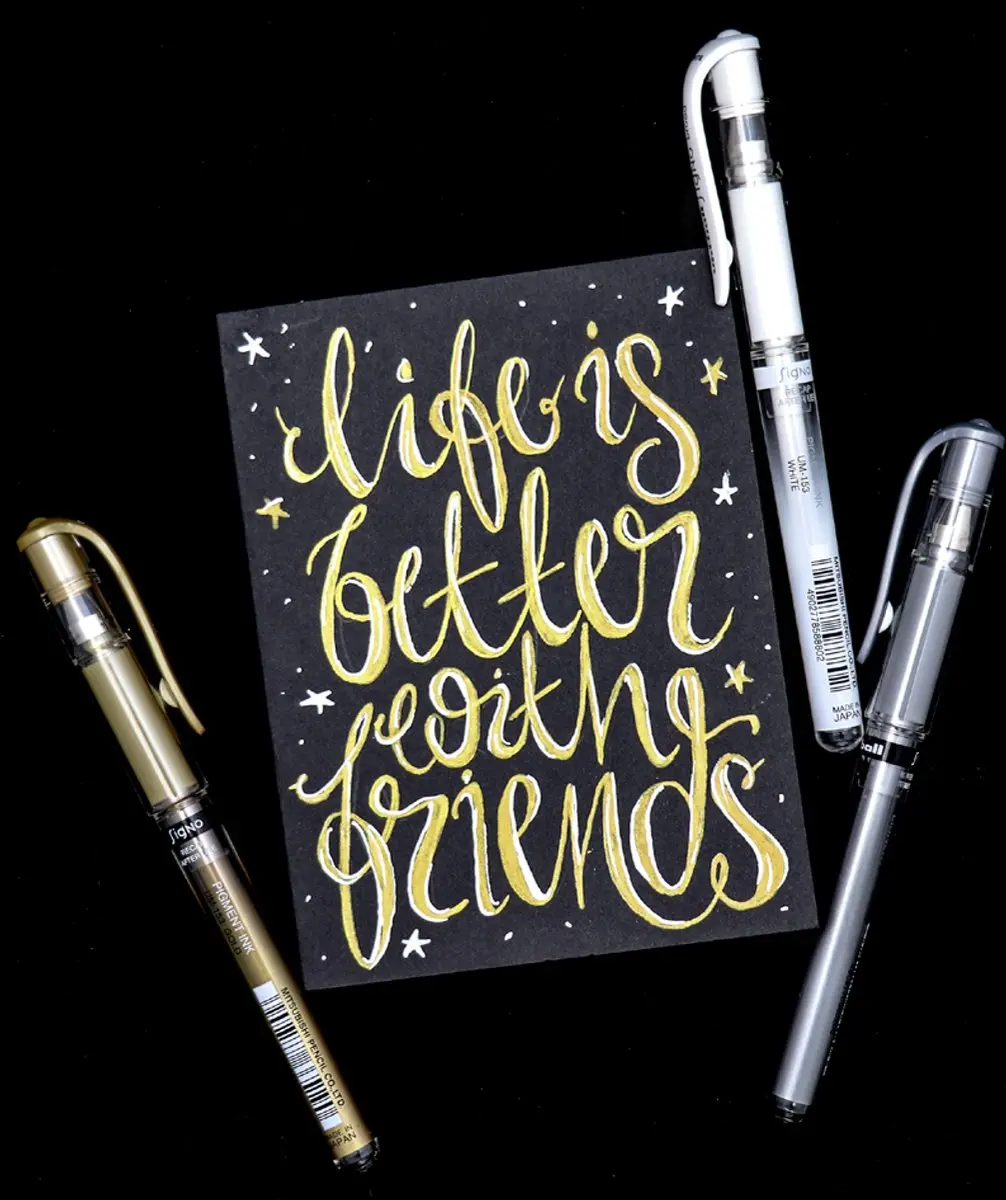 life is
better
with
friends
SigNO
RECAP
AFTER USE
UM-153
WHITE
MITSUBISHI PENCIL CO.,LTD.
4902778588802
MADE IN
JAPAN
SigNO
RECAP
AFTER
PIGMENT INK
UM-153 GOLD
MITSUBISHI PENCIL CO.,LTD.
MADE IN
JAPAN
ball